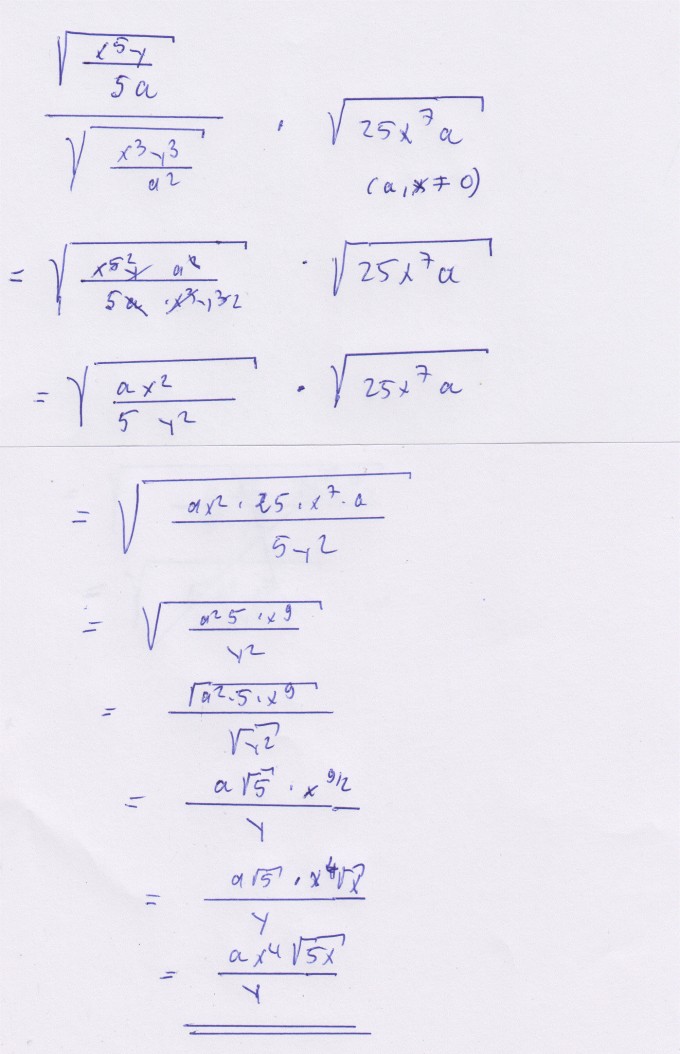 √(x⁵y / 5a) / √(x³y³ / a²) · √(25x⁷a)
(a, x ≠ 0)
= √(x⁵² y a² / 5a · x³ y³²) · √(25x⁷a)
= √(ax² / 5 y²) · √(25x⁷a)
= √(ax² · 25 · x⁷ · a / 5y²)
= √(a² 5 · x⁹ / y²)
= √(a² · 5 · x⁹) / √(y²)
= a√5 · x^(9/2) / y
= a√5 · x⁴√x / y
= ax⁴√(5x) / y